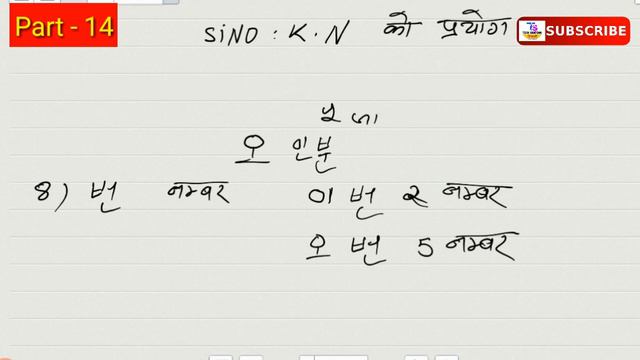 Part - 14
SiNO : K.N को प्रयोग
SUBSCRIBE
२ जा
오 인분
8) 번 नम्बर 이 번 २ नम्बर
오 번 5 नम्बर